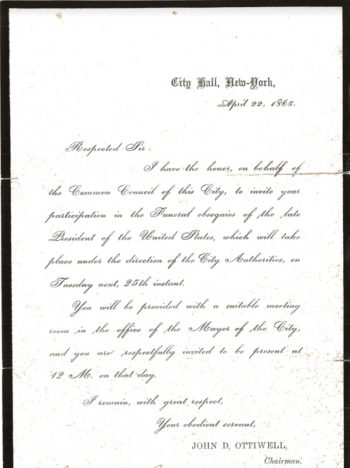 City Hall, New-York,
April 22, 1865.
Respected Sir:
I have the honor, on behalf of
the Common Council of this City, to invite your
participation in the Funeral obsequies of the late
President of the United States, which will take
place under the direction of the City Authorities, on
Tuesday next, 25th instant.
You will be provided with a suitable meeting
room in the office of the Mayor of the City,
and you are respectfully invited to be present at
12 M. on that day.
I remain, with great respect,
Your obedient servant,
JOHN D. OTTIWELL,
Chairman.